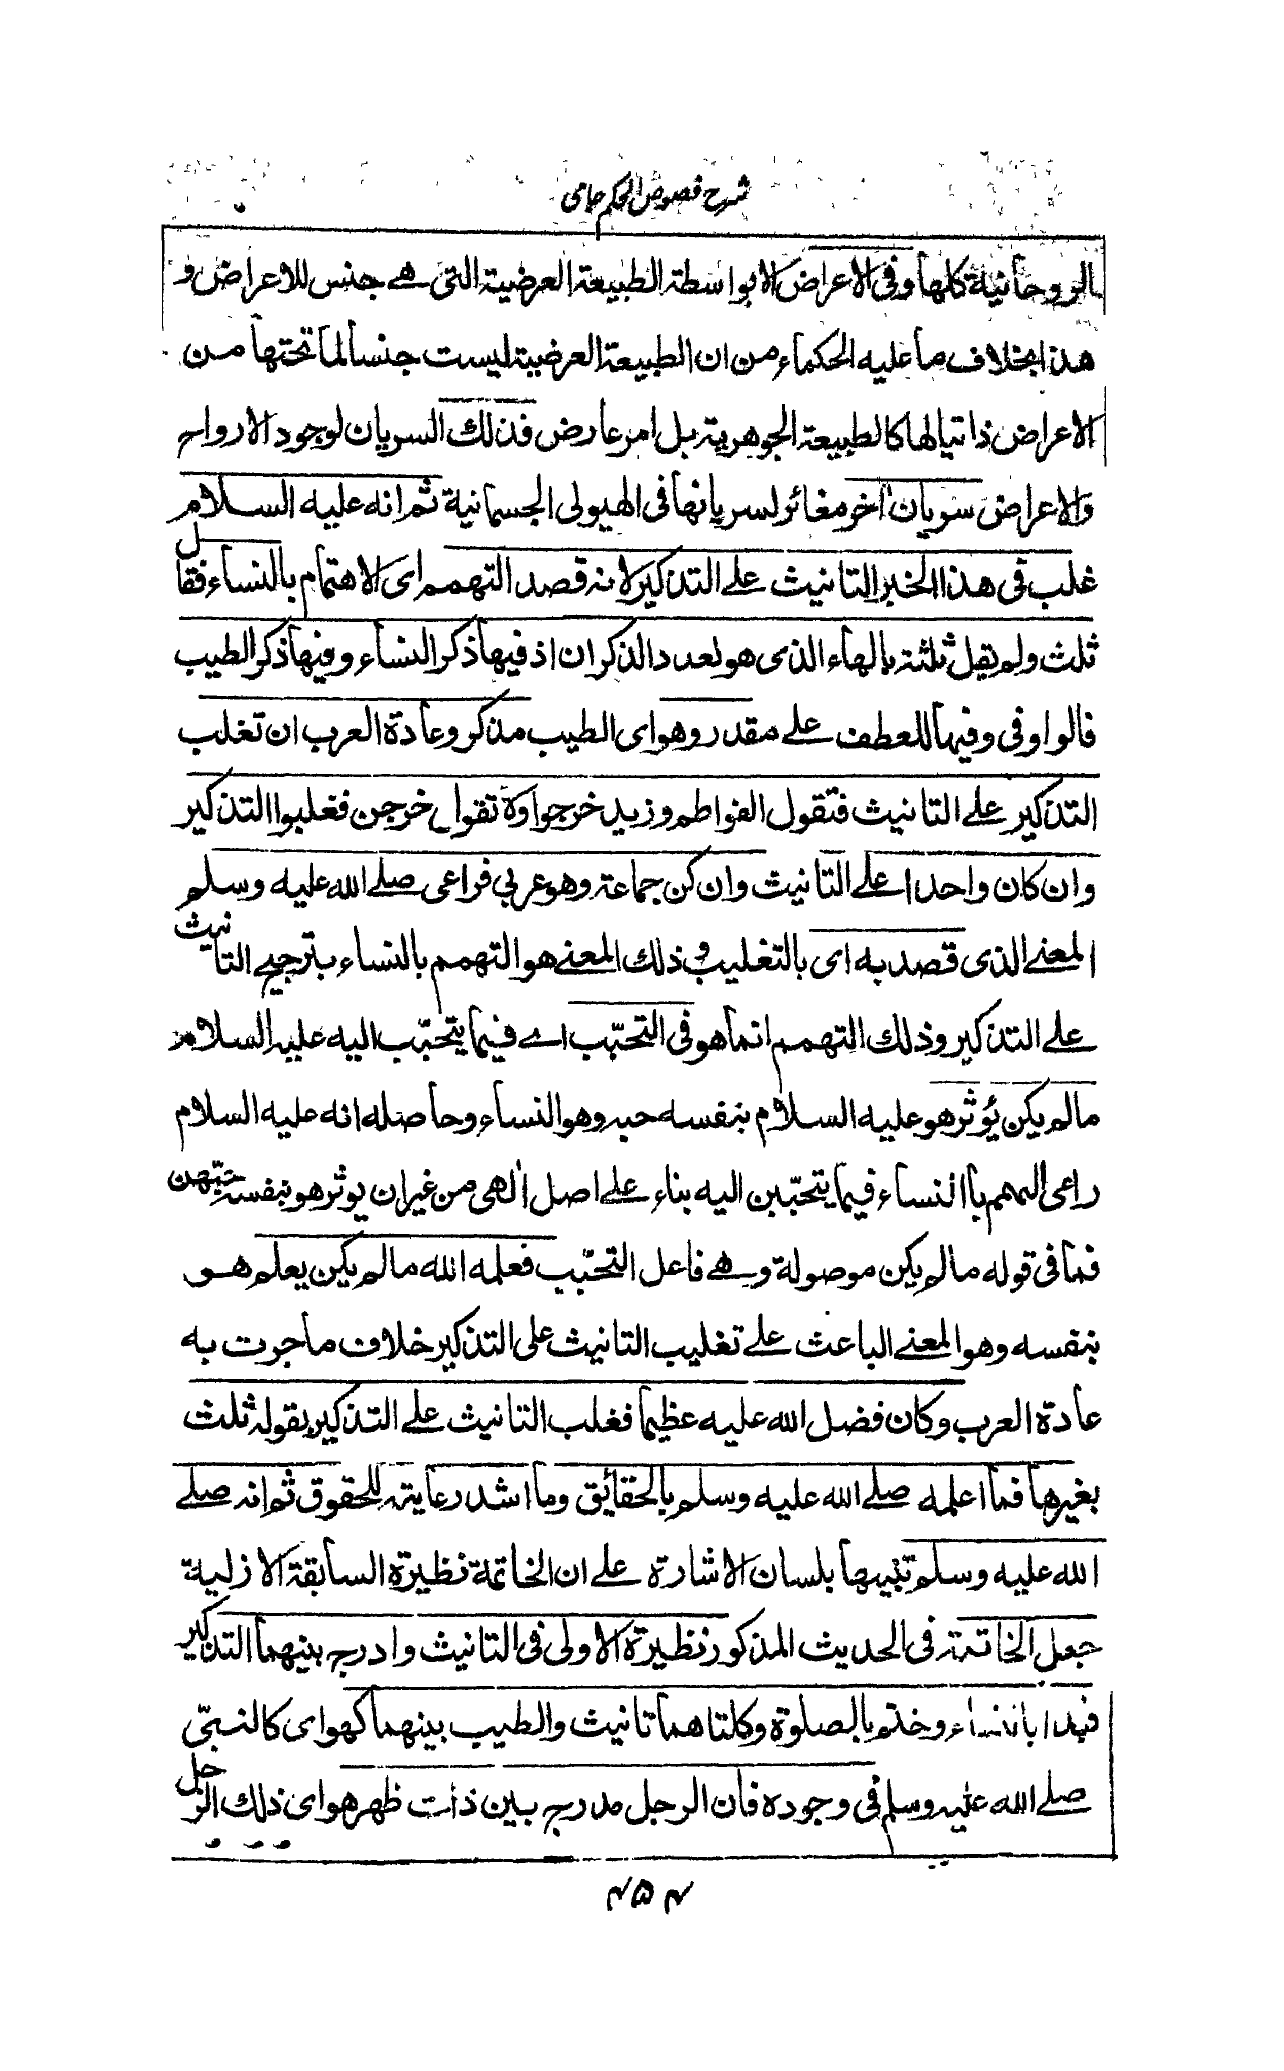 شرح فصوص الحكم جامى
بالروحانية كلها وفى الاعراض الا بواسطة الطبيعة العرضية التى هے جنس للاعراض و
هذا بخلاف ما عليه الحكماء من ان الطبيعة العرضية ليست جنسا لما تحتها من
الاعراض ذاتيا لها كالطبيعة الجوهرية بل امر عارض فذلك السريان لوجود الارواح
والاعراض سريان اخر مغائر لسريانها فى الهيولى الجسمانية ثم انه عليه السلام
غلب فى هذا الخبر التانيث علے التذكير لانه قصد التهمم اى الاهتمام بالنساء فقال
ثلث ولم يقل ثلثة بالهاء الذى هو لعدد الذكران اذ فيها ذكر النساء وفيها ذكر الطيب
فالواو فى وفيها للعطف علے مقدر وهو اى الطيب مذكر وعادة العرب ان تغلب
التذكير علے التانيث فتقول الفواطم وزيد خرجوا ولا تقول خرجن فغلبوا التذكير
وان كان واحدا علے التانيث وان كن جماعة وهو عربي فراعى صلے الله عليه وسلم
المعنے الذى قصد به اى بالتغليب وذلك المعنے هو التهمم بالنساء بترجيح التانيث
علے التذكير وذلك التهمم انما هو فى التحبّب اے فيما يتحبّب اليه عليه السلام
ما لم يكن يُوثر هو عليه السلام بنفسه حبه وهو النساء وحاصله انه عليه السلام
راعى المهم باالنساء فيما يتحبّبن اليه بناء علے اصل الٰهى من غير ان يوثر هو بنفسه حبّهن
فما فى قوله ما لم يكن موصولة وهے فاعل التحبّب فعلمه الله ما لم يكن يعلم هو
بنفسه وهو المعنے الباعث علے تغليب التانيث على التذكير خلاف ما جرت به
عادة العرب وكان فضل الله عليه عظيما فغلب التانيث علے التذكير بقوله ثلث
بغيرها فما اعلمه صلے الله عليه وسلم بالحقائق وما اشد رعايته للحقوق ثم انه صلے
الله عليه وسلم تنبيها بلسان الاشارة علے ان الخاتمة نظيرة السابقة الازلية
جعل الخاتمة فى الحديث المذكور نظيرة الاولى فى التانيث وادرج بينهما التذكير
فبدا بالنساء وختم بالصلوة وكلتاهما تانيث والطيب بينهما كهو اى كالنبىّ
صلے الله عليه وسلم فى وجوده فان الرجل مدرج بين ذات ظهر هو اى ذلك الرجل
۴۵۴